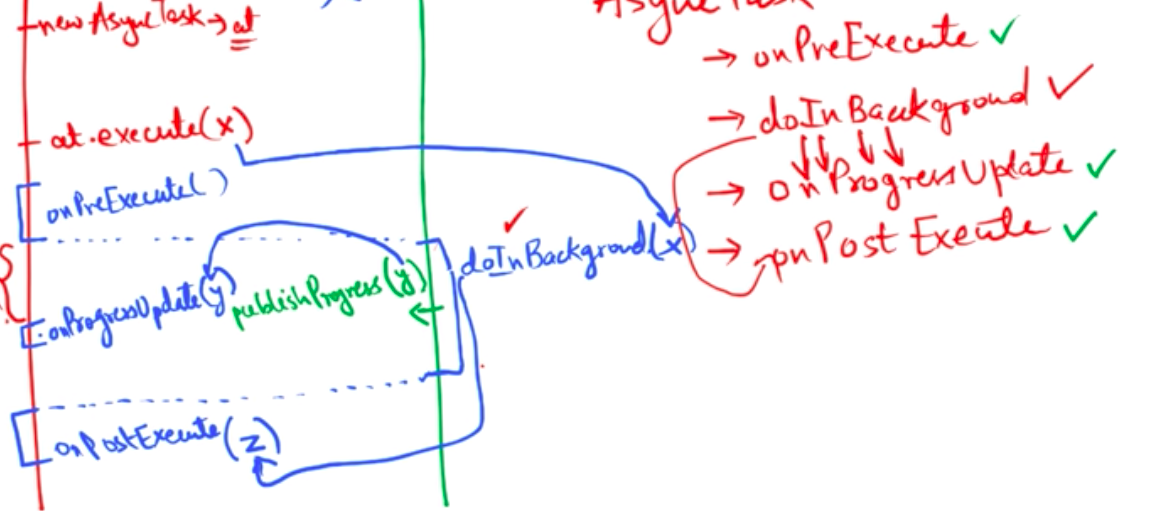 new AsyncTask → at
at.execute(x)
onPreExecute()
onProgressUpdate(y) publishProgress(y)
doInBackground(x)
onPostExecute(z)
AsyncTask
→ onPreExecute ✓
→ doInBackground ✓
→ onProgressUpdate ✓
→ onPostExecute ✓